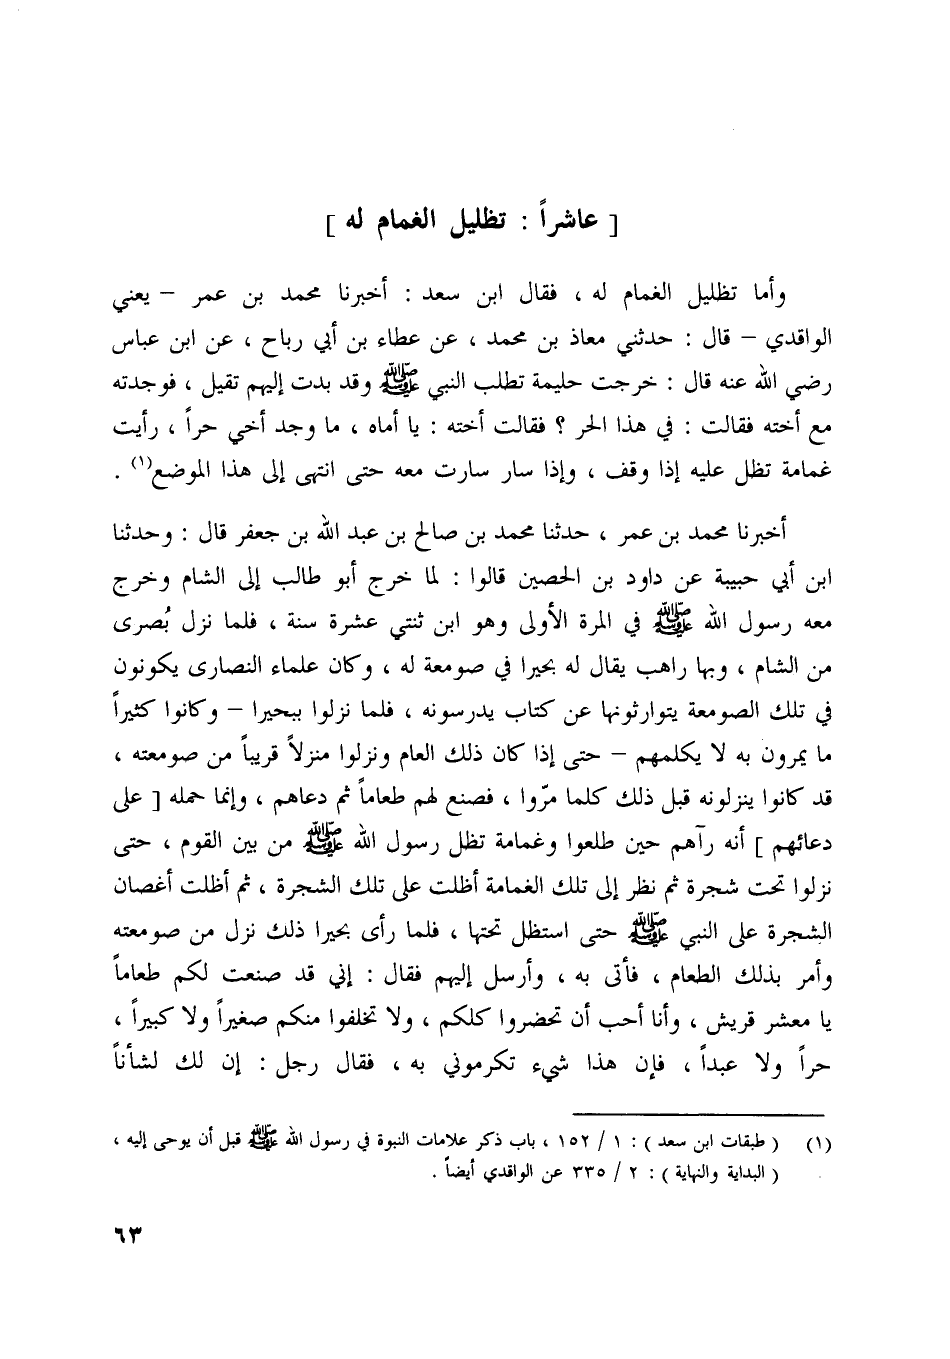 [ عاشراً : تظليل الغمام له ]
وأما تظليل الغمام له ، فقال ابن سعد : أخبرنا محمد بن عمر – يعني
الواقدي – قال : حدثني معاذ بن محمد ، عن عطاء بن أبي رباح ، عن ابن عباس
رضي الله عنه قال : خرجت حليمة تطلب النبي ﷺ وقد بدت إليهم تقيل ، فوجدته
مع أخته فقالت : في هذا الحر ؟ فقالت أخته : يا أماه ، ما وجد أخي حراً ، رأيت
غمامة تظل عليه إذا وقف ، وإذا سار سارت معه حتى انتهى إلى هذا الموضع(١) .
أخبرنا محمد بن عمر ، حدثنا محمد بن صالح بن عبد الله بن جعفر قال : وحدثنا
ابن أبي حبيبة عن داود بن الحصين قالوا : لما خرج أبو طالب إلى الشام وخرج
معه رسول الله ﷺ في المرة الأولى وهو ابن ثنتي عشرة سنة ، فلما نزل بُصرى
من الشام ، وبها راهب يقال له بحيرا في صومعة له ، وكان علماء النصارى يكونون
في تلك الصومعة يتوارثونها عن كتاب يدرسونه ، فلما نزلوا ببحيرا – وكانوا كثيراً
ما يمرون به لا يكلمهم – حتى إذا كان ذلك العام ونزلوا منزلاً قريباً من صومعته ،
قد كانوا ينزلونه قبل ذلك كلما مرّوا ، فصنع لهم طعاماً ثم دعاهم ، وإنما حمله [ على
دعائهم ] أنه رآهم حين طلعوا وغمامة تظل رسول الله ﷺ من بين القوم ، حتى
نزلوا تحت شجرة ثم نظر إلى تلك الغمامة أظلت على تلك الشجرة ، ثم أظلت أغصان
الشجرة على النبي ﷺ حتى استظل تحتها ، فلما رأى بحيرا ذلك نزل من صومعته
وأمر بذلك الطعام ، فأتى به ، وأرسل إليهم فقال : إني قد صنعت لكم طعاماً
يا معشر قريش ، وأنا أحب أن تحضروا كلكم ، ولا تخلفوا منكم صغيراً ولا كبيراً ،
حراً ولا عبداً ، فإن هذا شيء تكرموني به ، فقال رجل : إن لك لشأناً
(١) ( طبقات ابن سعد ) : ١ / ١٥٢ ، باب ذكر علامات النبوة في رسول الله ﷺ قبل أن يوحى إليه ،
( البداية والنهاية ) : ٢ / ٣٣٥ عن الواقدي أيضاً .
٦٣